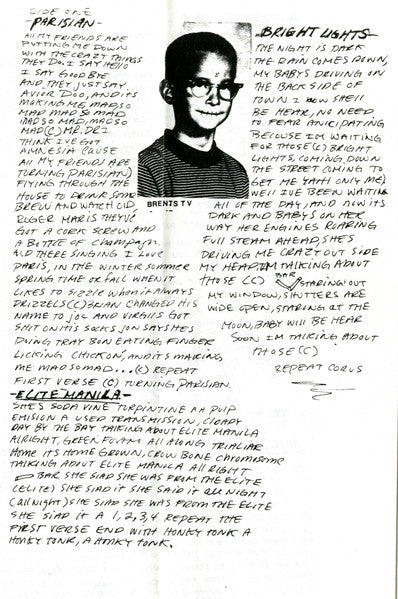 SIDE ONE
-PARISIAN-
All MY FRIENDS ARE
PUTTING ME DOWN
WITH THE CRAZY THINGS
THEY DO. I SAY HELLO
I SAY GOOD BYE
AND THEY JUST SAY
AVIOR DOO, AND ITS
MAKING ME MAD SO
MAD MAD SO MAD
MAD SO MAD, MAD SO
MAD (C) MR. DR I
THINK I'VE GOT
AMNESIA CAUSE
All MY FRIENDS ARE
TURNING PARISIAN)
FlYING THROUGH THE
HOUSE TO DRINK SOME
BREW AND WATCH OlD
ROGER MARIS THEY'VE
GOT A CORK SCREW AND
A BOTTLE OF Champagn.
AND THERE SINGING I LOVE
PARIS, IN THE WINTER SUMMER
SPRING TIME OR FALL WHEN IT
LIKES TO SIZZLE WHEN IT AlWAYS
DRIZZELS (C) BRIAN CHANGED HIS
NAME TO JOC AND VIRGILS GOT
SHIT ON HIS SOCKS JON SAYS HES
DOING TRAY BON EATING FINGER
LICKING CHICKON, AND ITS MAKING
ME MAD SO MAD...(C) REPEAT
FIRST VERSE (C) TURNING, PARISIAN.
BRENTS TV
BRIGHT LIGHTS-
THE NIGHT IS DARK
THE RAIN COMES DOWN,
MY BABYS DRIVING ON
THE BACK SIDE OF
TOWN I NOW SHE'll
BE HEAR, NO NEED
TO FEAR ANICIPATING
BECOUSE I'M WAITING
FOR THOSE (C) BRIGHT
LIGHTS, COMING, DOWN
THE STREET COMING TO
GET ME YAH ONLY ME,
WEll I'VE BEEN WAITING
All OF THE DAY, AND NOW ITS
DARK AND BABYS ON HER
WAY HER ENGINES ROARING
FUll STEAM AHEAD, SHES
DRIVING ME CRAZY OUT SIDE
MY HEAR, I'M TALKING ABOUT
THOSE (C) BAR STARING OUT
MY WINDOW, SHUTTERS ARE
WIDE OPEN, STARING AT THE
MOON, BABY WIll BE HEAR
SOON I'M TALKING ABOUT
THOSE (C)
REPEAT CORUS
-ELITE MANILA-
SHE'S SODA VINE TORPINTINE AH PULP
EMISION A USED TRANSMISSION, CLOADY
DAY BY THE BAY TALKING ABOUT ELITE MANILA
AlRIGHT, GREEN All ALONG TRIALIAR
Home ITS HOME GROWN, CROW BONE CHROMOSOME
TALKING ABOUT ELITE MANILA All RIGHT
BAR SHE SIAD SHE WAS FROM THE ELITE
(ELITE) SHE SIAD IT SHE SAID IT All NIGHT
(All NIGHT) SHE SIAD SHE WAS FROM THE ELITE
SHE SIAD IT A 1, 2, 3, 4 REPEAT THE
FIRST VERSE END WITH HONKY TONK A
HONKY TONK, A HONKY TONK.